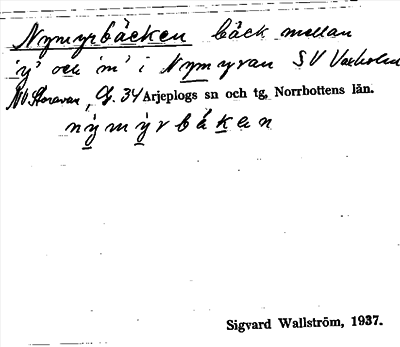 Nymyrbäcken bäck mellan
'y' och 'm' i Nymyran SV
NV Storavan, 34 Arjeplogs sn och tg, Norrbottens län.
nymyrbäkən
Sigvard Wallström, 1937.